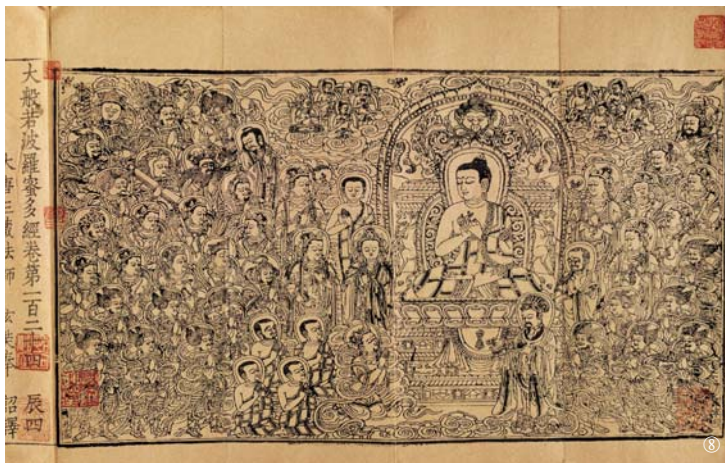 大般若波羅蜜多經卷第二百二十四 辰四
大唐三藏法師 玄奘奉 詔譯
⑧